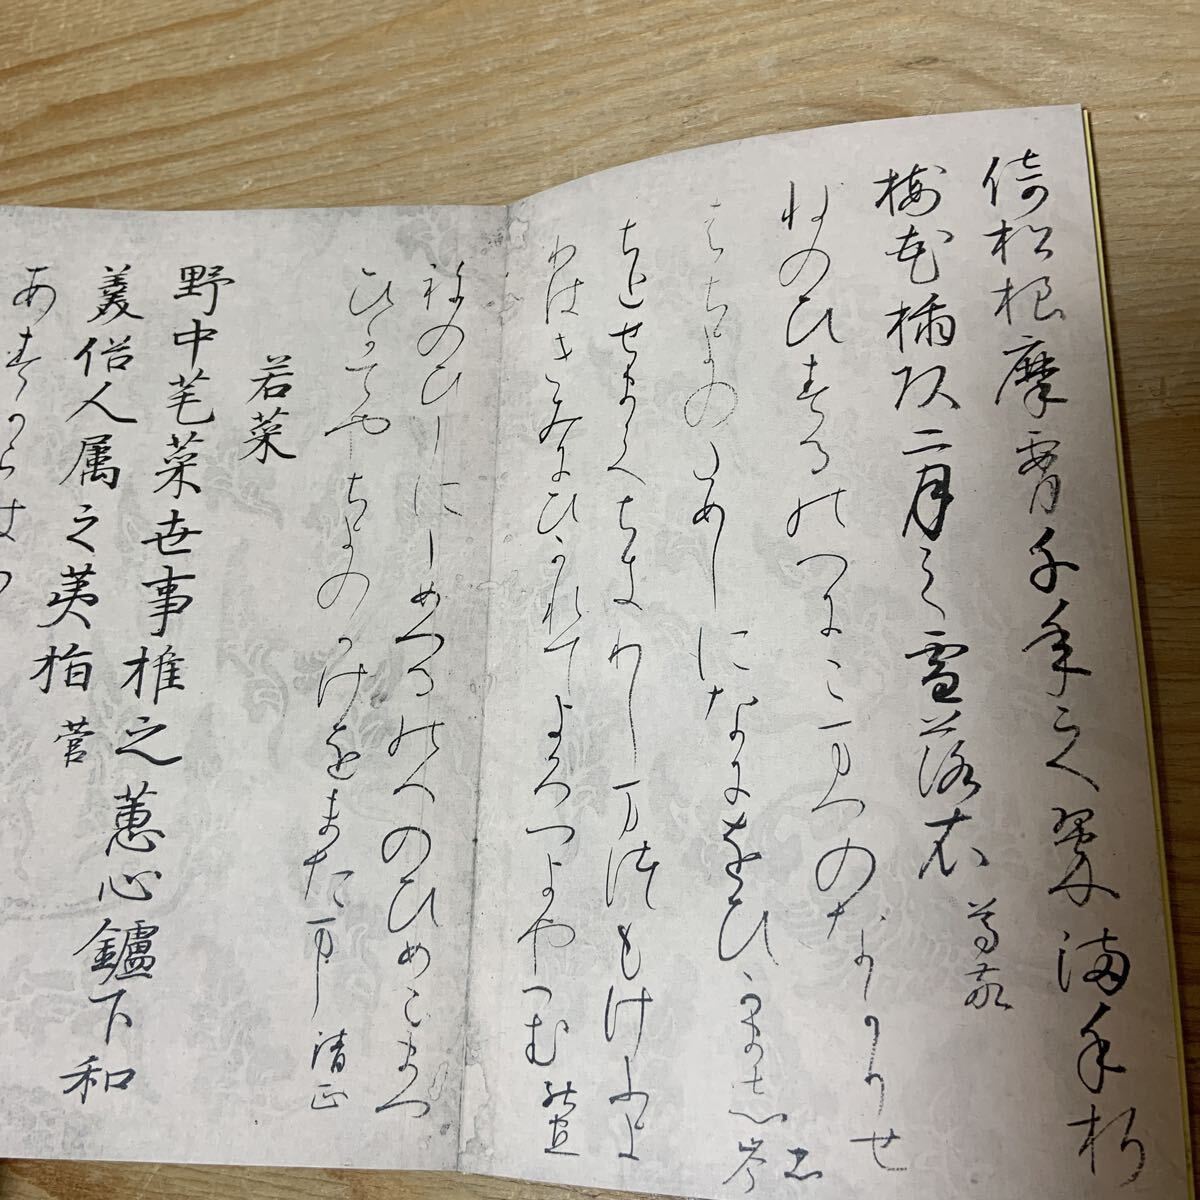 倚松根摩腰千年之翠満手折
梅花插頭二月之雪落衣 尊敬
ねのひするのへにこまつのなかりせ
はちよのためしになにをひかまし 忠岑
ちとせまてちきりしまつもけふより
はきみにひかれてよろつよやへむ 能宣
ねのひしにしめつるのへのひめこまつ
ひかてやちよのかけをまたまし 清正
若菜
野中芼菜世事推之蕙心鑪下和
羹俗人属之荑指 菅
あすからは